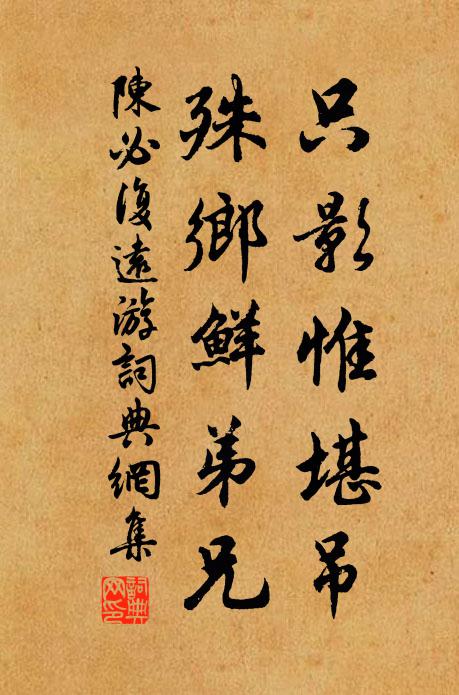 只影惟堪吊
殊鄉鮮弟兄
陳必復遠游詞典網集
詞典網印